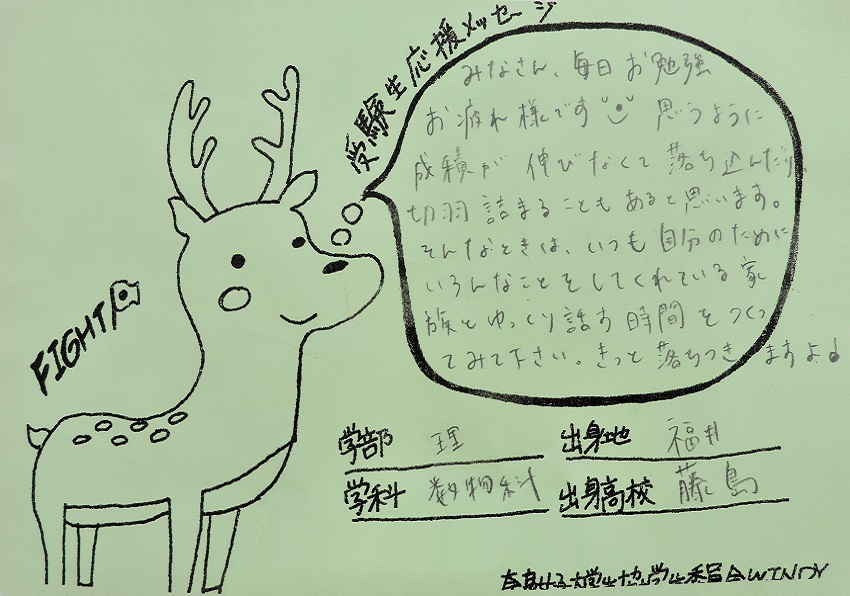 受験生応援メッセージ
みなさん、毎日お勉強
お疲れ様です 思うように
成績が伸びなくて落ち込んだり
切羽詰まることもあると思います。
そんなときは、いつも自分のために
いろんなことをしてくれている家
族とゆっくり話す時間をつくっ
てみて下さい。きっと落ちつきますよ♪
FIGHT!
学部 理
出身地 福井
学科 数物科
出身高校 藤島
奈良女子大学生協学生委員会WINDY